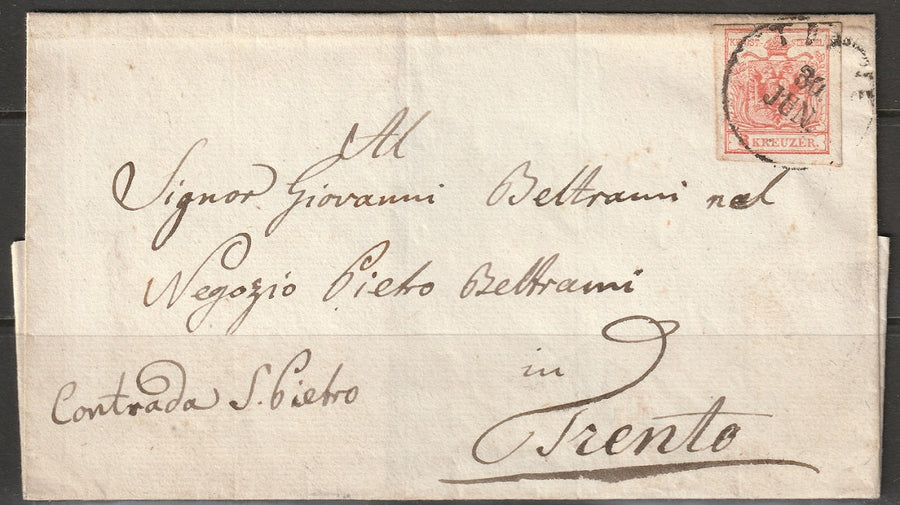 KREUZER.
30
JUN.
Al
Signor Giovanni Beltrami nel
Negozio Pietro Beltrami
in
Contrada S. Pietro
Trento